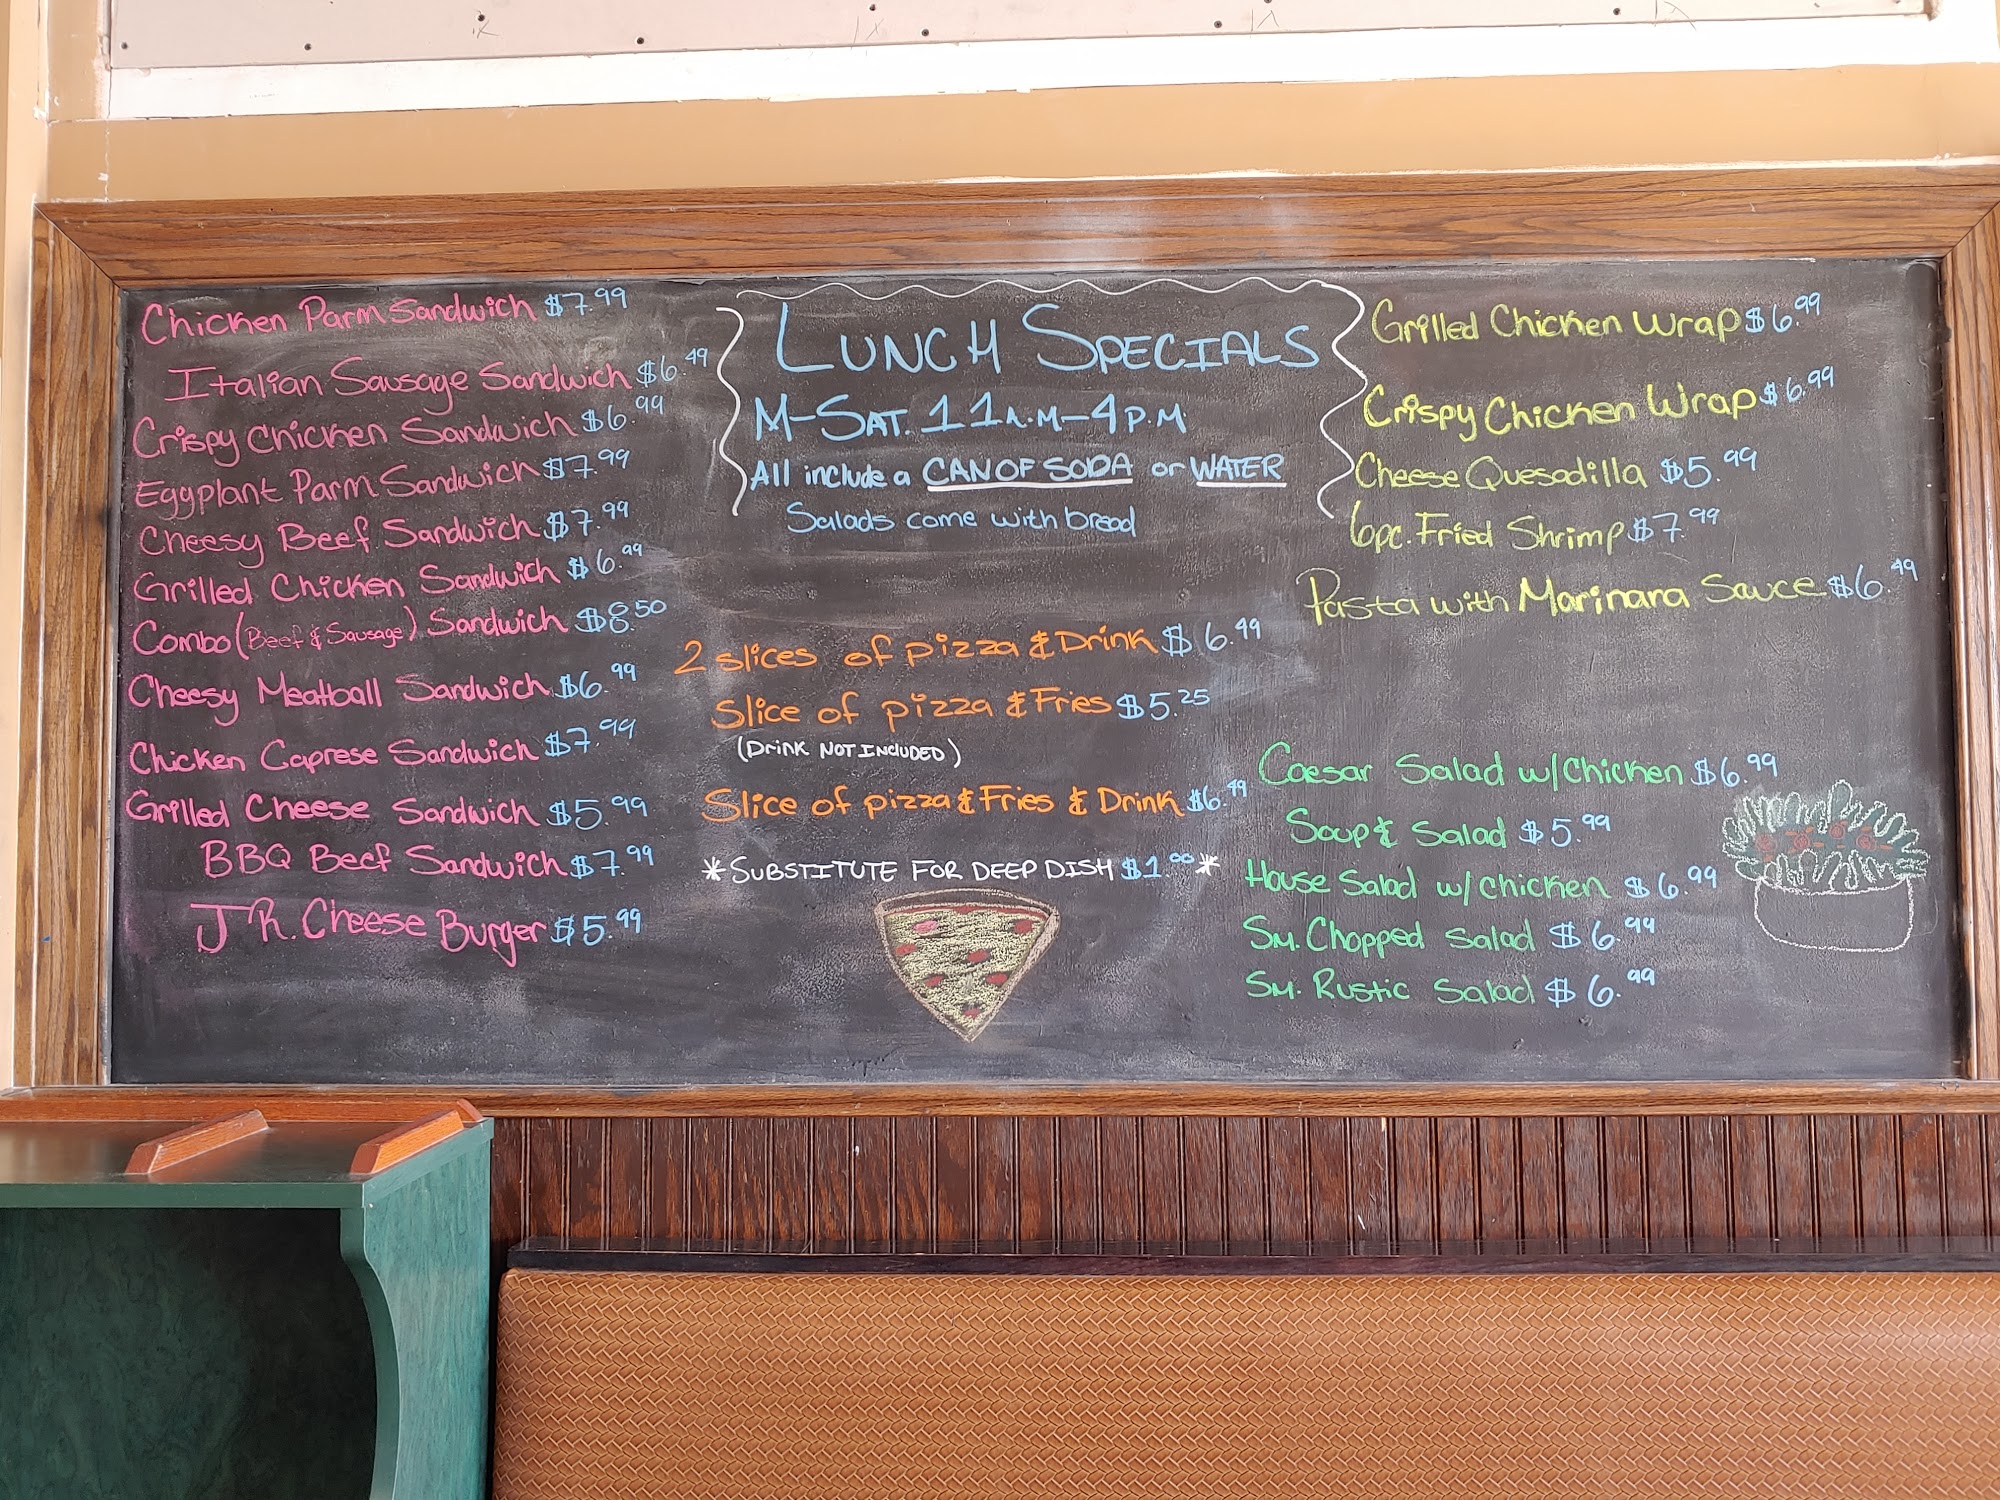 Chicken Parm Sandwich $7.99
Italian Sausage Sandwich $6.49
Crispy Chicken Sandwich $6.99
Eggplant Parm Sandwich $7.99
Cheesy Beef Sandwich $7.99
Grilled Chicken Sandwich $6.99
Combo (Beef & Sausage) Sandwich $8.50
Cheesy Meatball Sandwich $6.99
Chicken Caprese Sandwich $7.99
Grilled Cheese Sandwich $5.99
BBQ Beef Sandwich $7.99
JR. Cheese Burger $5.99
LUNCH SPECIALS
M-SAT. 11A.M-4P.M
All include a CAN OF SODA or WATER
Salads come with bread
2 slices of pizza & Drink $6.49
Slice of pizza & Fries $5.25
(DRINK NOT INCLUDED)
Slice of pizza & Fries & Drink $6.49
*SUBSTITUTE FOR DEEP DISH $1.00*
Grilled Chicken Wrap $6.99
Crispy Chicken Wrap $6.99
Cheese Quesadilla $5.99
6pc. Fried Shrimp $7.99
Pasta with Marinara Sauce $6.49
Caesar Salad w/Chicken $6.99
Soup & Salad $5.99
House Salad w/chicken $6.99
SM. Chopped Salad $6.99
SM. Rustic Salad $6.99